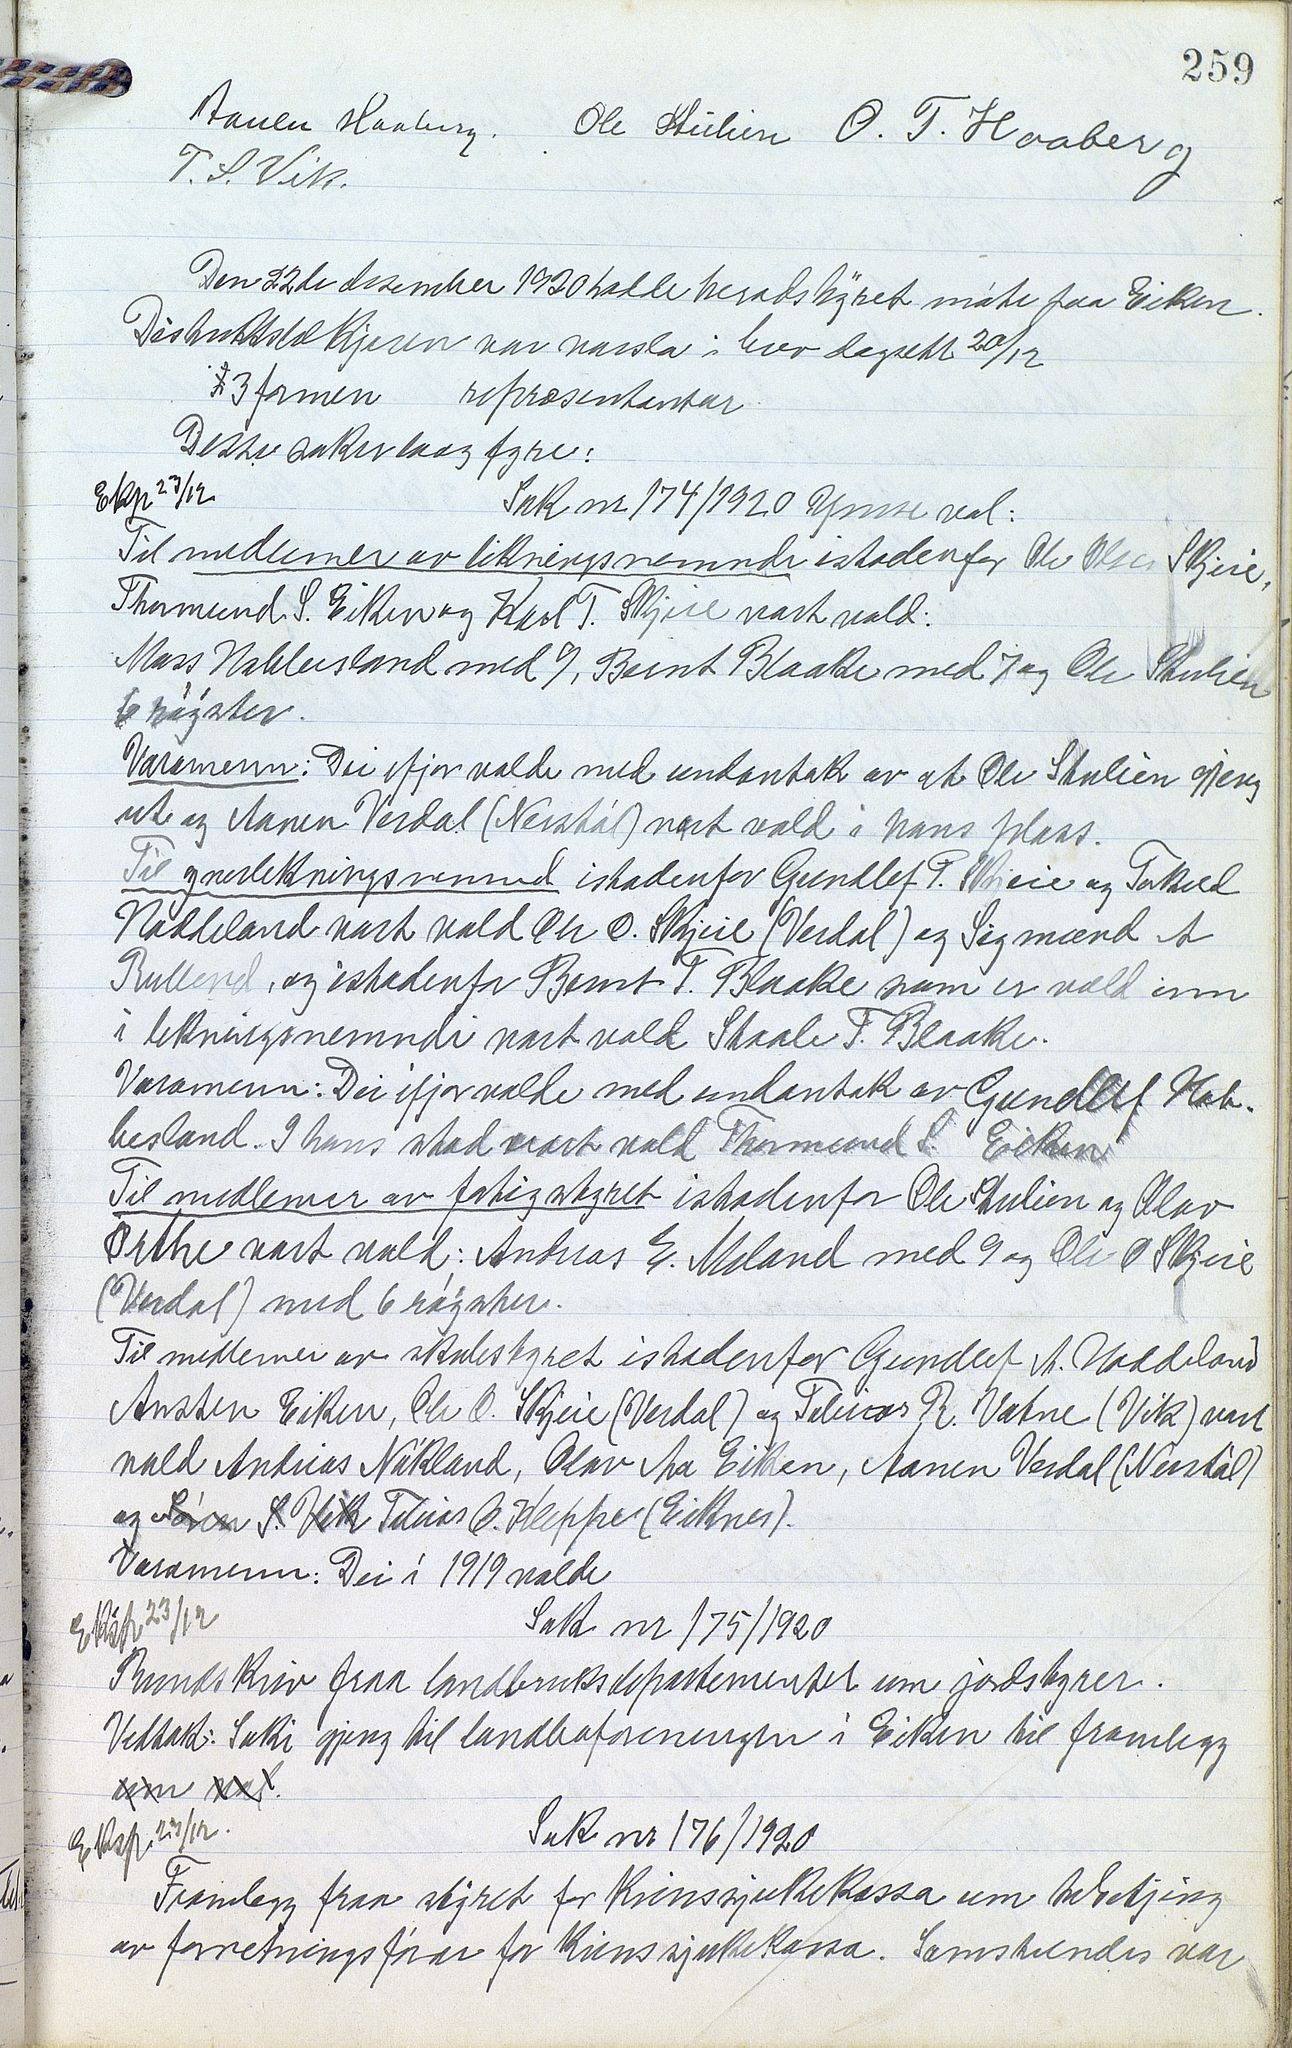 259
Aanen Haaberg. Ole Stulien O. T. Haaberg
T. S. Vik.
Den 22de desember 1920 hadde heradstyret møte paa Eiken.
Distriktslækjaren var varsla i brev dagsett 20/12
13 formen representantar
Desse saker laag fyre:
Eksp 23/12 Sak nr 174/1920 Ymse val:
Til medlemer av likningsnemndi istadenfor Ole Olsen Skjeie,
Thormund S. Eiken og Karl T. Skjeie vart vald:
Mass Hobbesland med 9, Bernt Blaake med 7 og Ole Stulien
6 røyster.
Varamenn: Dei ifjor valde med undantak av at Ole Stulien gjeng
ut og Aanen Verdal (Nerstøl) vart vald i hans plass.
Til yverlikningsnemnd istadenfor Gundlef T. Skjeie og Torkel
Haddeland vart vald Ole O. Skjeie (Verdal) og Sigmund A
Rulland, og istadenfor Bernt T. Blaake som er vald inn
i likningsnemndi vart vald Staale T. Blaake.
Varamenn: Dei ifjor valde med undantak av Gundlef Hob-
besland. I hans stad vart vald Thormund S. Eiken
Til medlemer av fatigstyret istadenfor Ole Stulien og Olav
Ørthe vart vald: Andreas E. Meland med 9 og Ole O Skjeie
(Verdal) med 6 røyster.
Til medlemer av skulestyret istadenfor Gundlef A. Haddeland
Ansten Eiken, Ole O. Skjeie (Verdal) og Tobias R. Vatne (Vik) vart
vald Andreas Nøkland, Olav Aa Eiken, Aanen Verdal (Nerstøl)
og Søren S. Vik Tobias O. Kleppe (Eiknes).
Varamenn: Dei i 1919 valde
Eksp 23/12 Sak nr 175/1920
Rundskriv fraa landbruksdepartementet um jordstyrer.
Vedtak: Saki gjeng til landboforeningen i Eiken til framlegg
um val.
Eksp. 23/12. Sak nr 176/1920
Framlegg fraa styret for Krinssjukekassa um
av forretningsførar for Krinssjukekassa. Samstundes var